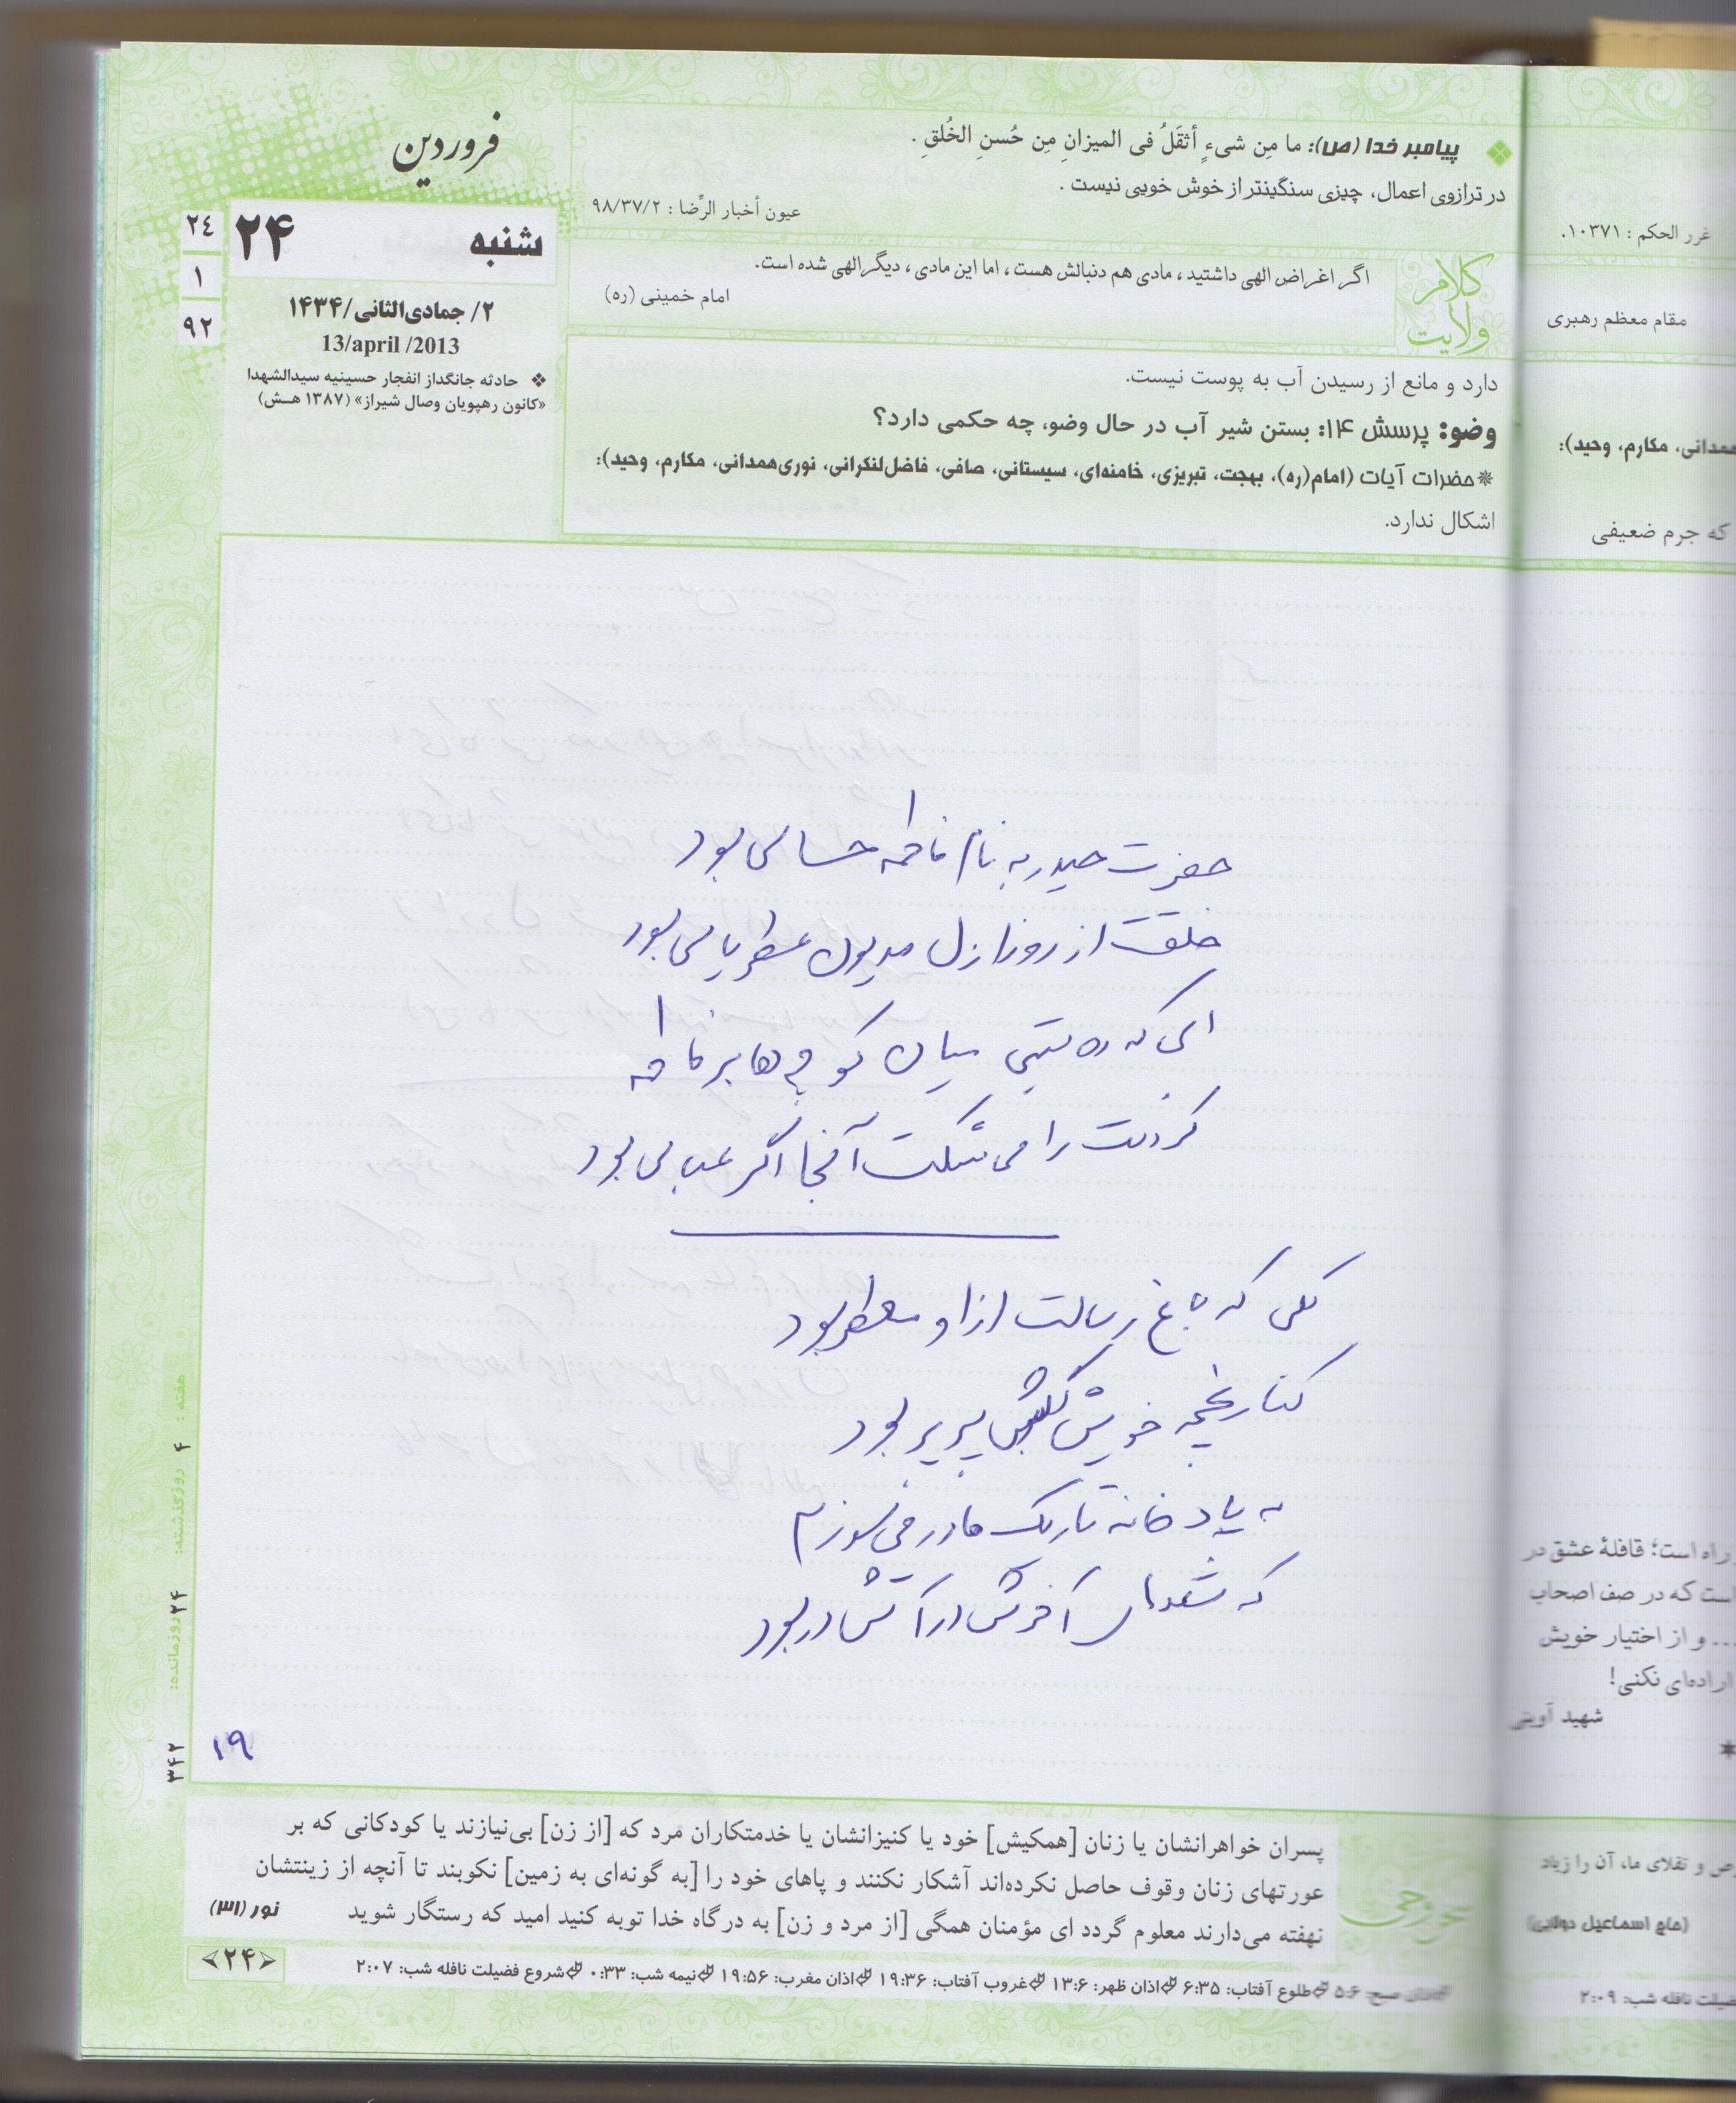 فروردین
۲۴
۱
۹۲
شنبه ۲۴
۲/ جمادی‌الثانی/۱۴۳۴
13/april /2013
❖ حادثه جانگداز انفجار حسینیه سیدالشهدا
«کانون رهپویان وصال شیراز» (۱۳۸۷ هـ.ش)
❖ پیامبر خدا (ص): ما مِن شیءٍ أثقَلُ فی المیزانِ مِن حُسنِ الخُلقِ .
در ترازوی اعمال، چیزی سنگینتر از خوش خویی نیست .
عیون أخبار الرِّضا : ۹۸/۳۷/۲
کلام ولایت
اگر اغراض الهی داشتید ، مادی هم دنبالش هست ، اما این مادی ، دیگر الهی شده است.
امام خمینی (ره)
دارد و مانع از رسیدن آب به پوست نیست.
وضو: پرسش ۱۴: بستن شیر آب در حال وضو، چه حکمی دارد؟
*حضرات آیات (امام(ره)، بهجت، تبریزی، خامنه‌ای، سیستانی، صافی، فاضل‌لنکرانی، نوری‌همدانی، مکارم، وحید):
اشکال ندارد.
حضرت حیدر به نام فاطمه حساس بود
خلقت از روز ازل مدیون عطر یاس بود
ای که ره بستی میان کوچه ها بر فاطمه
گردنت را می شکست آنجا اگر عباس بود
گلی که باغ رسالت از او معطر بود
کنار غنچه خویش پرپر بود
به یاد خانه تاریک مادر می سوزم
که آخرش در آتش در بود
۱۹
هفته : ۴ روز گذشته: ۲۴ روز مانده: ۳۴۲
پسران خواهرانشان یا زنان [همکیش] خود یا کنیزانشان یا خدمتکاران مرد که [از زن] بی‌نیازند یا کودکانی که بر
عورتهای زنان وقوف حاصل نکرده‌اند آشکار نکنند و پاهای خود را [به گونه‌ای به زمین] نکوبند تا آنچه از زینتشان
نهفته می‌دارند معلوم گردد ای مؤمنان همگی [از مرد و زن] به درگاه خدا توبه کنید امید که رستگار شوید
نور (۳۱)
اذان صبح: ۵:۶ طلوع آفتاب: ۶:۳۵ اذان ظهر: ۱۳:۶ غروب آفتاب: ۱۹:۳۶ اذان مغرب: ۱۹:۵۶ نیمه شب: ۰:۳۳ شروع فضیلت نافله شب: ۲:۰۷
۲۴
غرر الحکم : ۱۰۳۷۱.
مقام معظم رهبری
همدانی، مکارم، وحید):
که جرم ضعیفی
راه است؛ قافلهٔ عشق در
است که در صف اصحاب
... و از اختیار خویش
اراده‌ای نکنی!
شهید آوینی
و تقلای ما، آن را زیاد
(حاج اسماعیل دولابی)
فضیلت نافله شب: ۲:۰۹